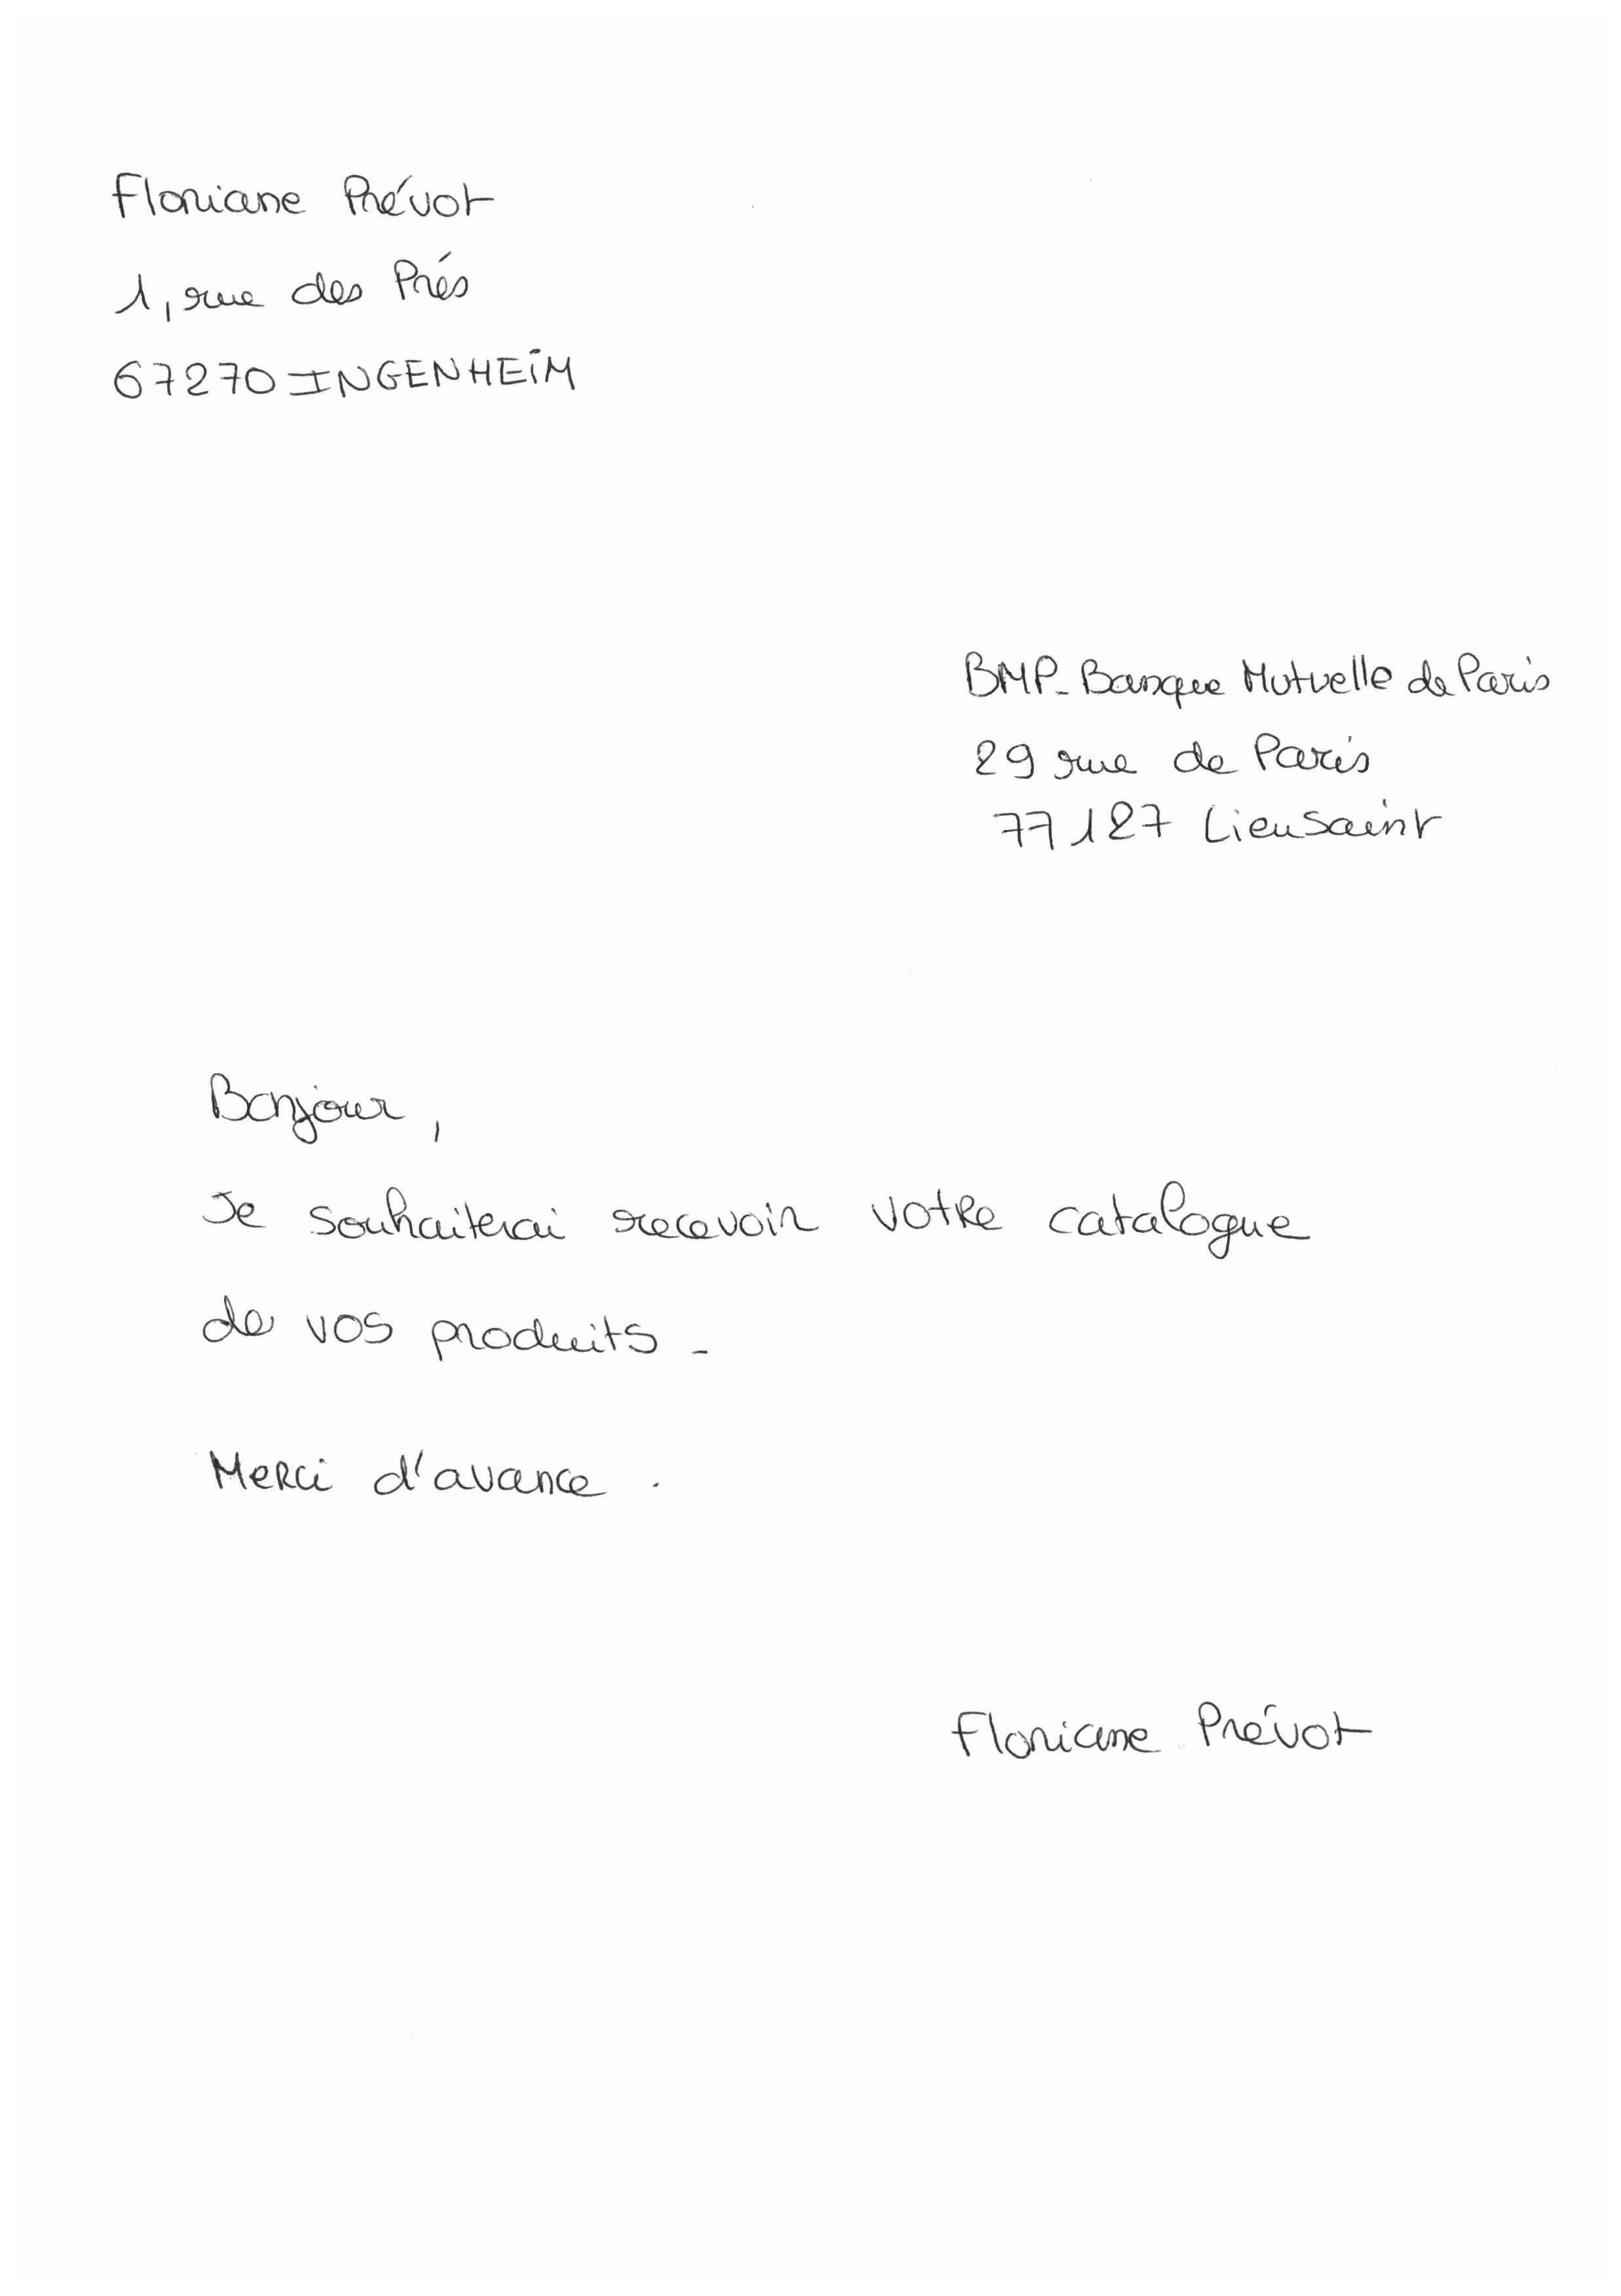 Floriane Prévot
1, rue des Prés
67270 INGENHEIM
BMP- Banque Mutuelle de Paris
29 rue de Paris
77127 Lieusaint
Bonjour,
Je souhaiterai recevoir votre catalogue
de vos produits.
Merci d'avance.
Floriane Prévot